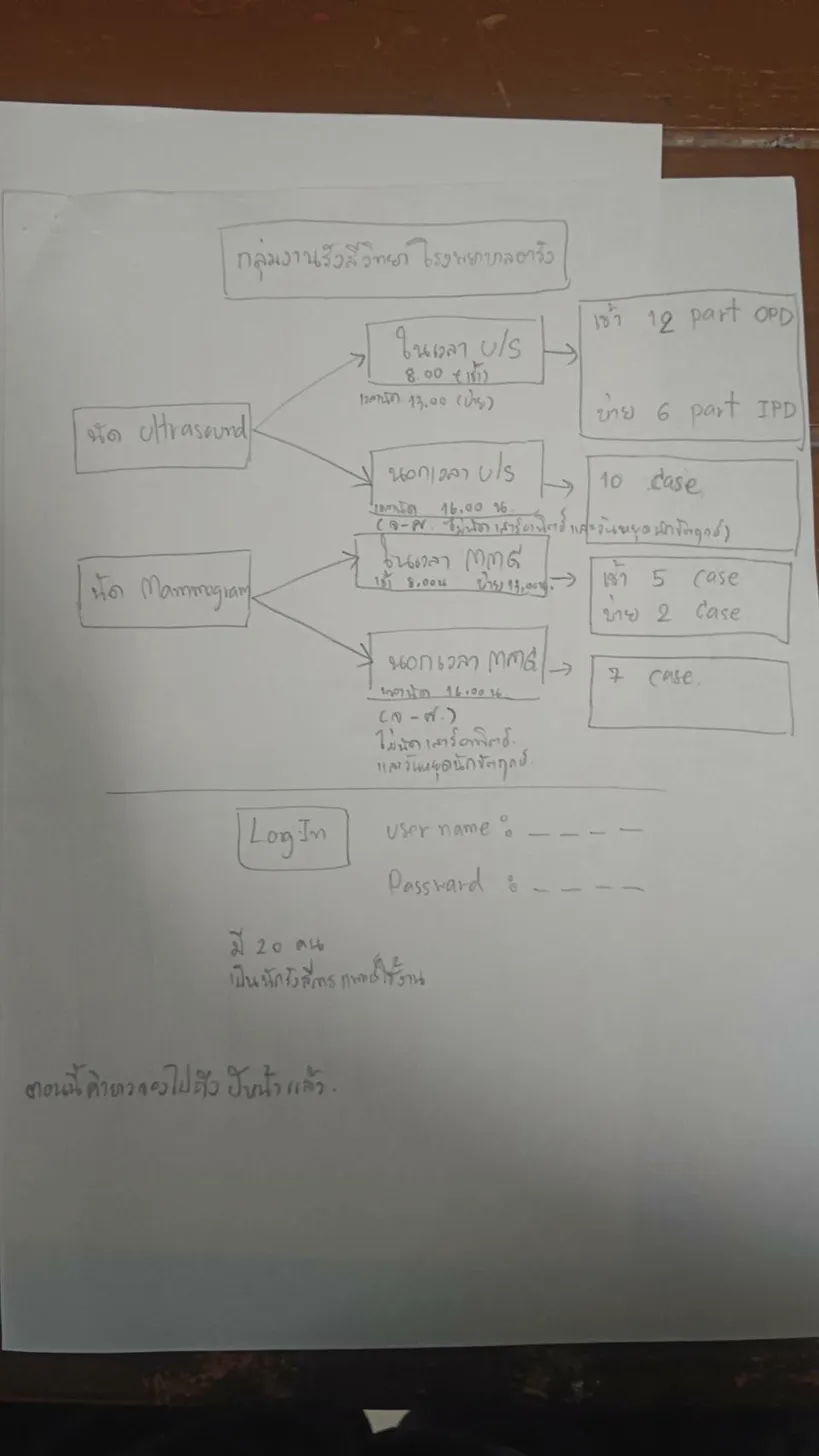 กลุ่มงานรังสีวิทยา โรงพยาบาลตรัง
ในเวลา U/S
8.00 (เช้า)
เวลานัด 13.00 (บ่าย)
เช้า 12 part OPD
บ่าย 6 part IPD
นัด Ultrasound
นอกเวลา U/S
เวลานัด 16.00 น.
(จ-ศ. ไม่นัดเสาร์อาทิตย์ และวันหยุดนักขัตฤกษ์)
10 case
นัด Mammogram
ในเวลา MMG
เช้า 8.00น บ่าย 13.00น.
เช้า 5 case
บ่าย 2 case
นอกเวลา MMG
เวลานัด 16.00 น
(จ-ศ.)
ไม่นัดเสาร์อาทิตย์.
และวันหยุดนักขัตฤกษ์.
7 case.
LogIn
user name : _ _ _ _
Password : _ _ _ _
มี 20 คน
เป็นนักรังสีการแพทย์ใช้งาน
ตอนนี้คิวยาวจองไปถึงปีหน้าแล้ว.